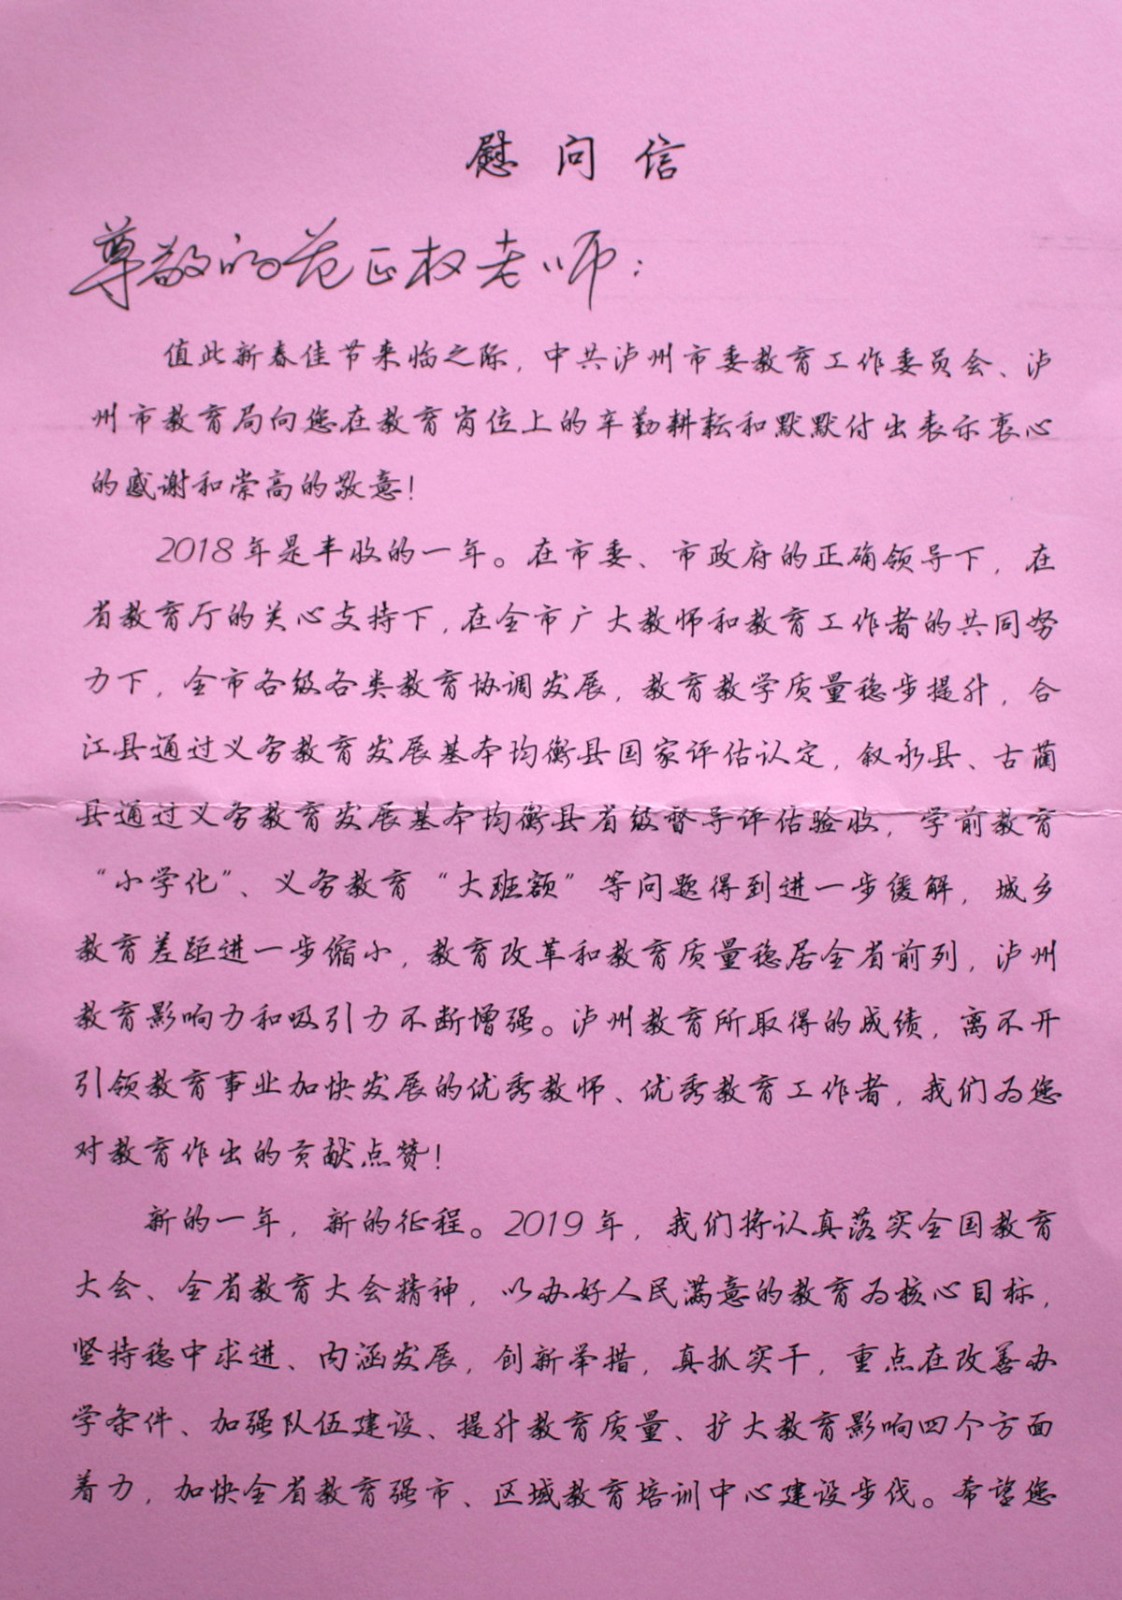 慰问信
尊敬的范正权老师：
值此新春佳节来临之际，中共泸州市委教育工作委员会、泸
州市教育局向您在教育岗位上的辛勤耕耘和默默付出表示衷心
的感谢和崇高的敬意！
2018年是丰收的一年。在市委、市政府的正确领导下，在
省教育厅的关心支持下，在全市广大教师和教育工作者的共同努
力下，全市各级各类教育协调发展，教育教学质量稳步提升，合
江县通过义务教育发展基本均衡县国家评估认定，叙永县、古蔺
县通过义务教育发展基本均衡县省级督导评估验收，学前教育
“小学化”、义务教育“大班额”等问题得到进一步缓解，城乡
教育差距进一步缩小，教育改革和教育质量稳居全省前列，泸州
教育影响力和吸引力不断增强。泸州教育所取得的成绩，离不开
引领教育事业加快发展的优秀教师、优秀教育工作者，我们为您
对教育作出的贡献点赞！
新的一年，新的征程。2019年，我们将认真落实全国教育
大会、全省教育大会精神，以办好人民满意的教育为核心目标，
坚持稳中求进、内涵发展，创新举措，真抓实干，重点在改善办
学条件、加强队伍建设、提升教育质量、扩大教育影响四个方面
着力，加快全省教育强市、区域教育培训中心建设步伐。希望您